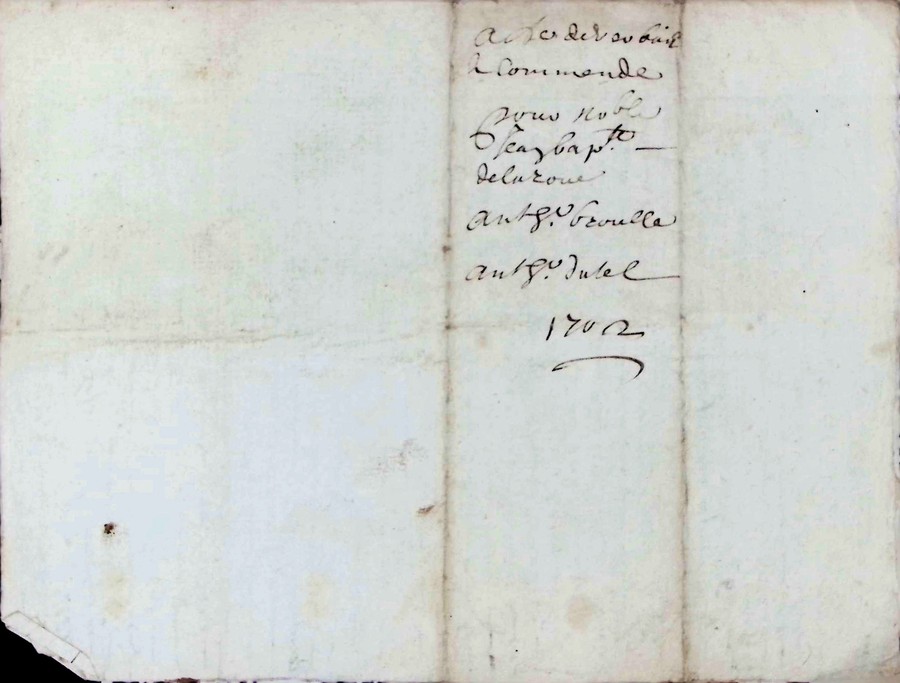 acte de verbail
& commende
pour noble
Jean bap.te
delaroue
anth.e broulle
anth.e dutel
1702